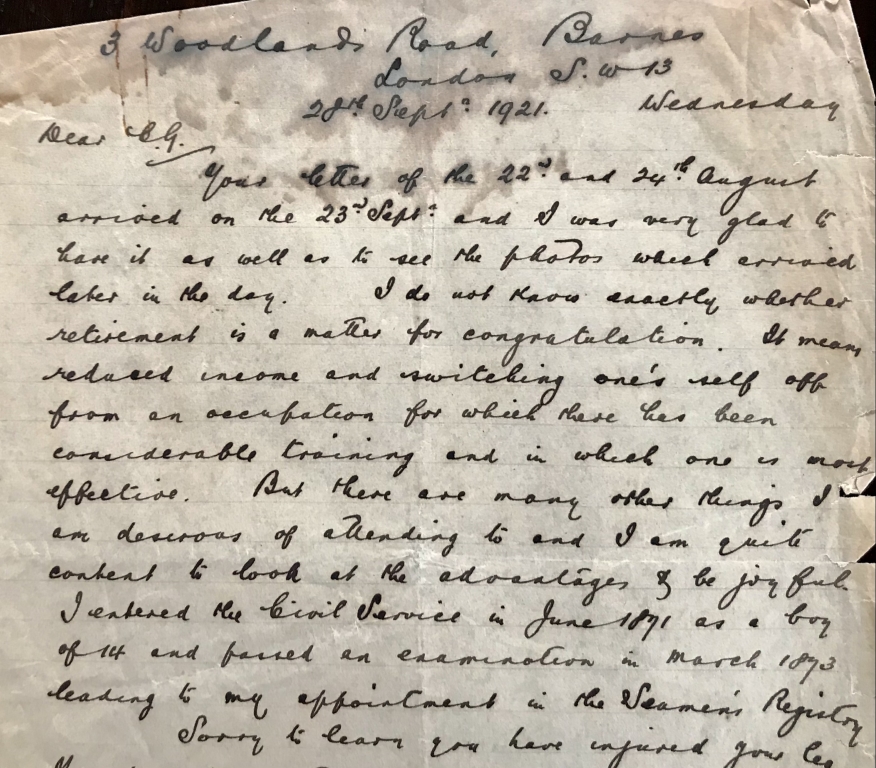 3 Woodlands Road, Barnes
London S.W 13
28th Septr 1921. Wednesday
Dear C.G.
Your letter of the 22nd and 24th August
arrived on the 23rd Septr and I was very glad to
have it as well as to see the photos which arrived
later in the day. I do not know exactly whether
retirement is a matter for congratulation. It means
reduced income and switching one's self off
from an occupation for which there has been
considerable training and in which one is most
effective. But there are many other things I
am desirous of attending to and I am quite
content to look at the advantages & be joyful.
I entered the Civil Service in June 1871 as a boy
of 14 and passed an examination in March 1873
leading to my appointment in the Seamen's Registry
Sorry to learn you have injured your leg